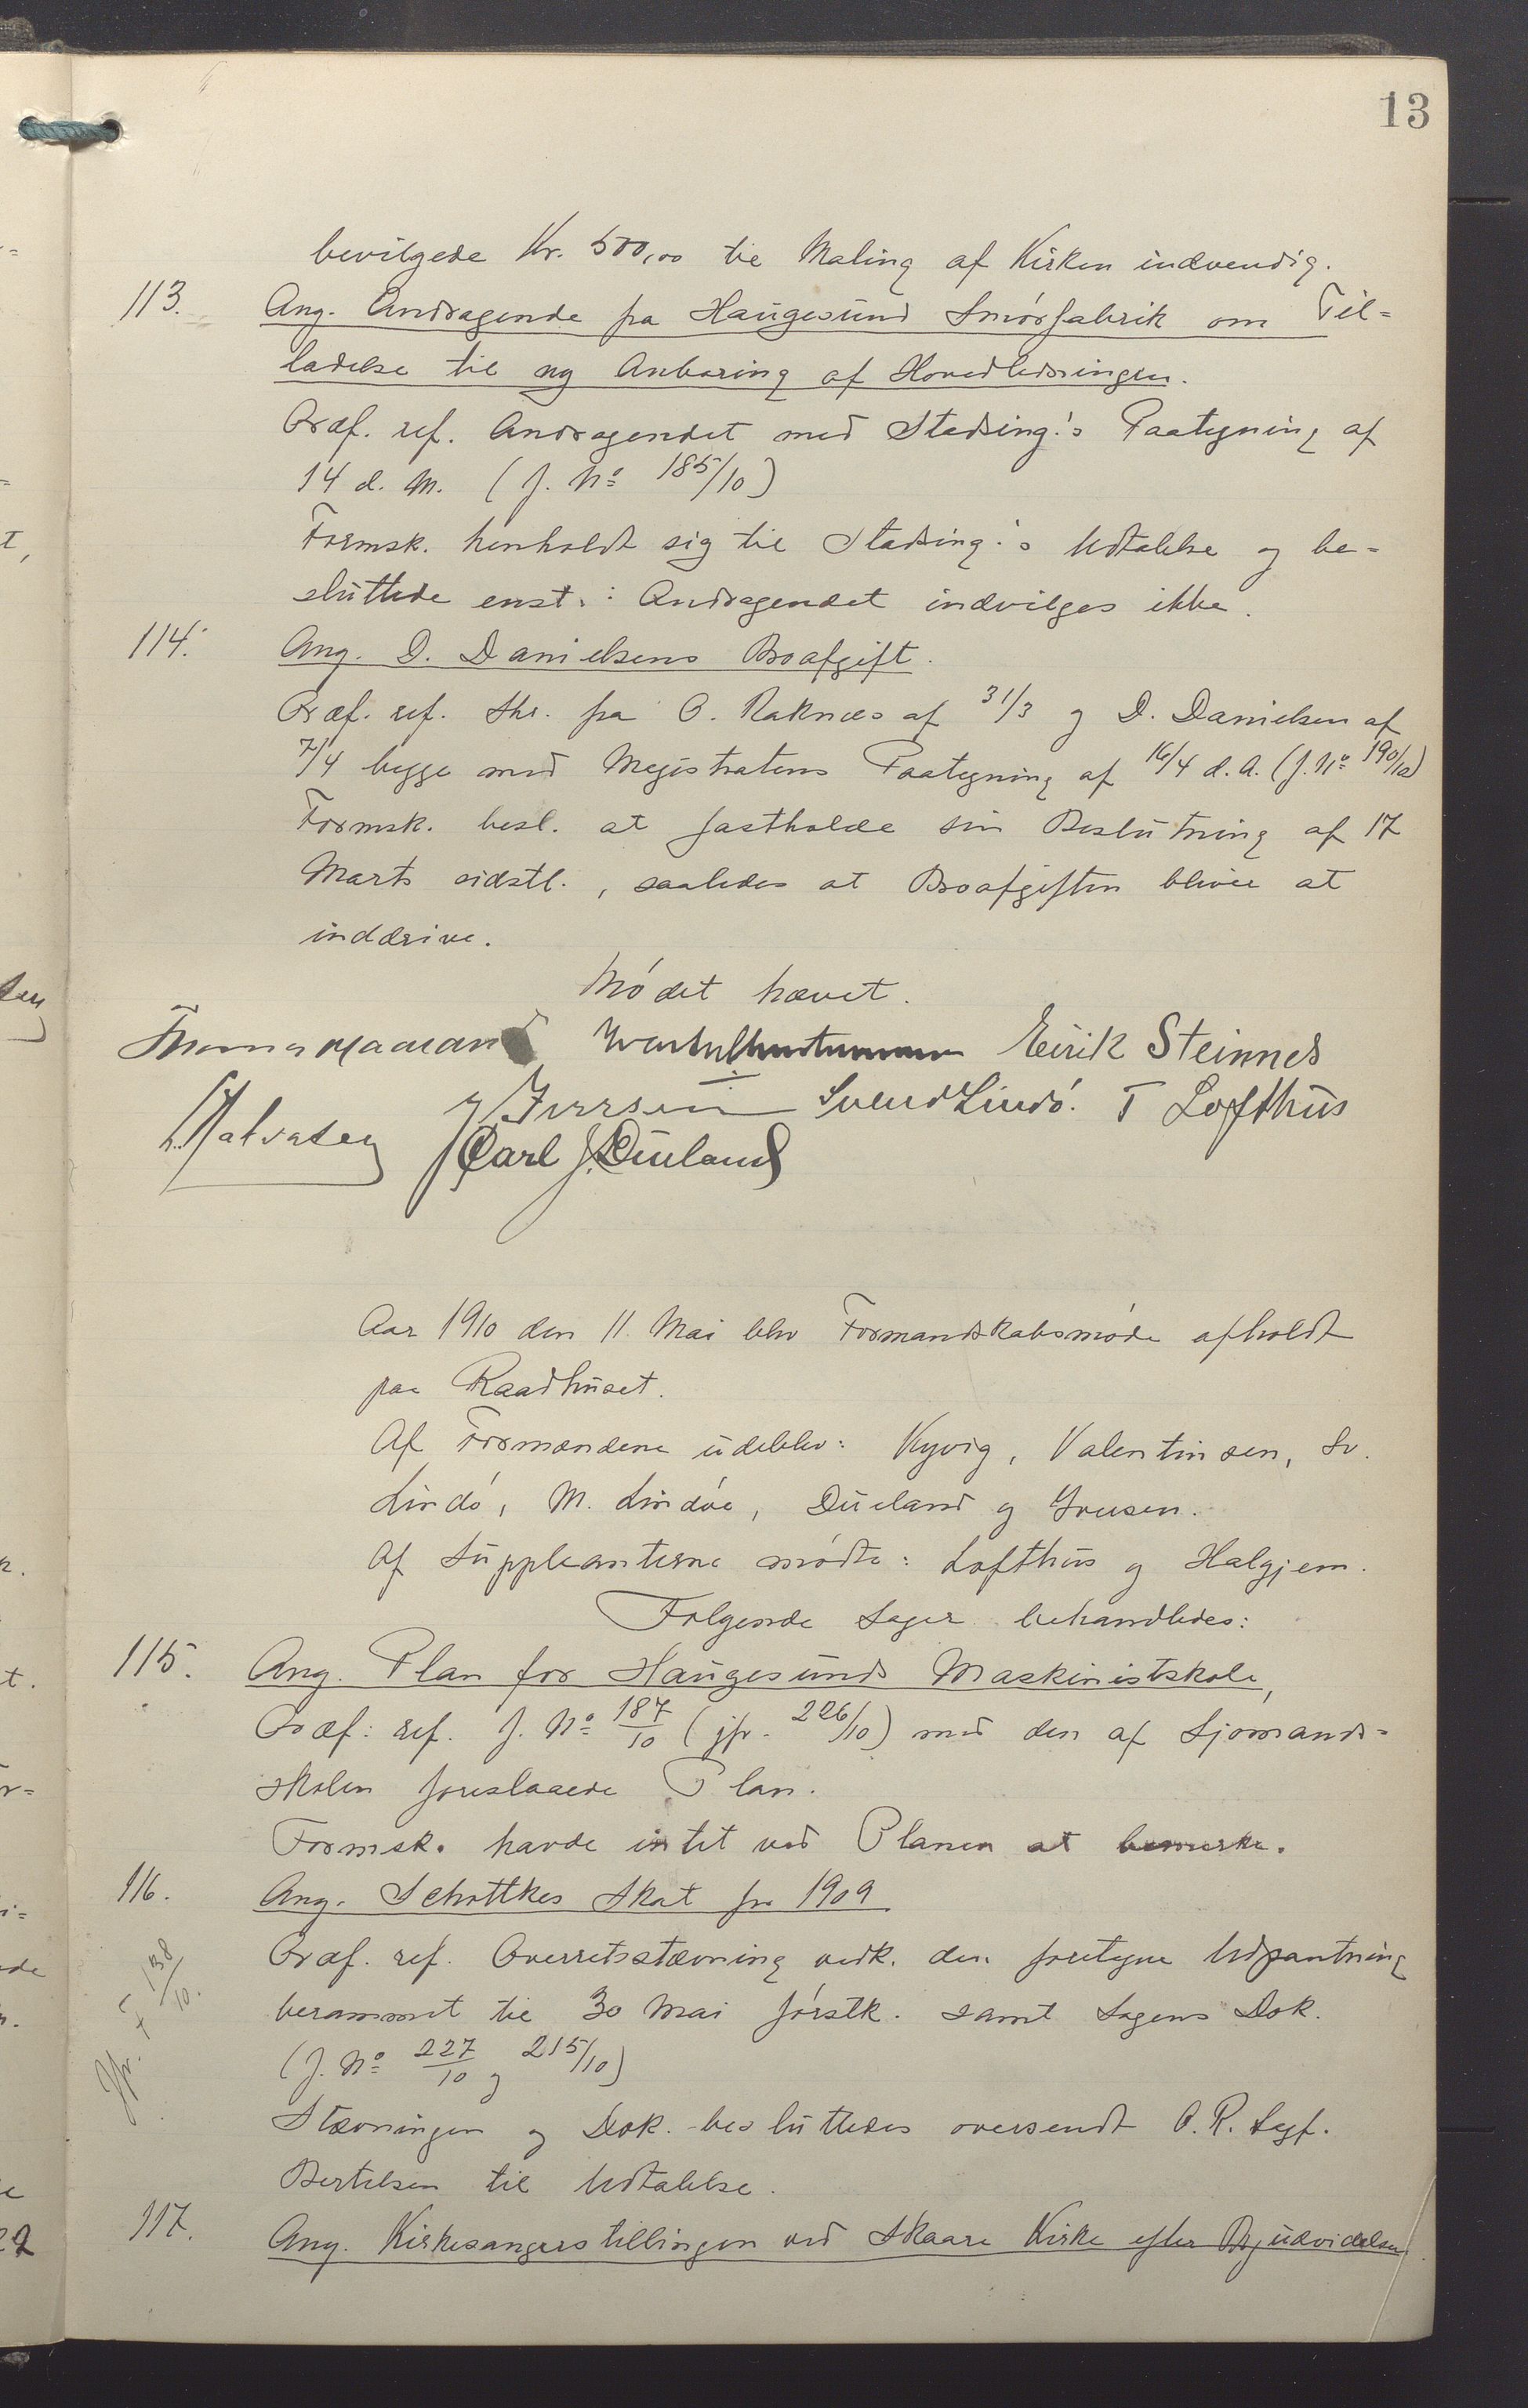 13
bevilgede Kr. 500,00 til Maling af Kirken indvendig.
113. Ang. Andragende fra Haugesund Smørfabrik om Til-
ladelse til ny Anboring af Hovedledningen.
Ordf. ref. Andragendet med Stadsing.'s Paategning af
14 d. M. (J. No 185/10)
Formsk. henholdt sig til Stadsing.'s Udtalelse og be-
sluttede enst.: Andragendet indvilges ikke.
114. Ang. D. Danielsens Broafgift.
Ordf. ref. Skr. fra O. Raknes af 31/3 og D. Danielsen af
7/4 begge med Magistratens Paategning af 16/4 d. A. (J. No 190/10)
Formsk. besl. at fastholde sin Beslutning af 17
Marts sidstl., saaledes at Broafgiften bliver at
inddrive.
Mødet hævet.
Eirik Steinnes
Iversen Svend Lindø. T Lofthus
Halvorsen Carl J. Dueland
Aar 1910 den 11. Mai blev Formandskabsmøde afholdt
paa Raadhuset.
Af Formændene udeblev: Kyvig, Valentinsen, Sv.
Lindø, M. Lindøe, Dueland og Iversen.
Af Suppleanterne mødte: Lofthus og Halgjem.
Følgende Sager behandledes:
115. Ang. Plan for Haugesunds Maskinistskole,
Ordf. ref. J. No 187/10 (jfr. 226/10) med den af Sjømands-
skolen foreslaaede Plan.
Formsk. havde intet ved Planen at bemerke.
116. Ang. Schottkes Skat for 1909.
Ordf. ref. Overretsstævning vedk. den foretagne Udpantning
berammet til 30 Mai førstk. samt Sagens Dok.
(J. No 227/10 og 215/10)
Jfr. F 138/10.
Stævningen og Dok. besluttedes oversendt O.R. Sagf.
Bertelsen til Udtalelse.
117. Ang. Kirkesangerstillingen ved Skaare Kirke efter Byudvidelsen.